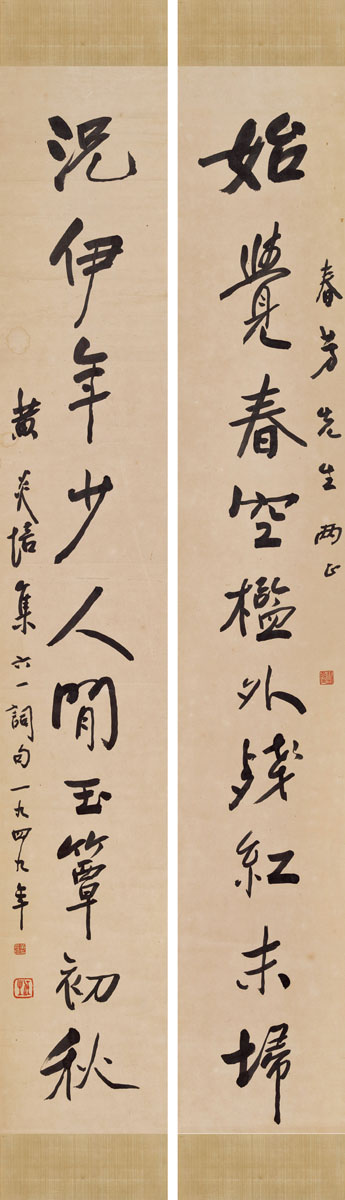 春芳先生 两正
始覺春空檻外残紅未埽
況伊年少人閒玉簟初秋
黄炎培集六一詞句一九四九年